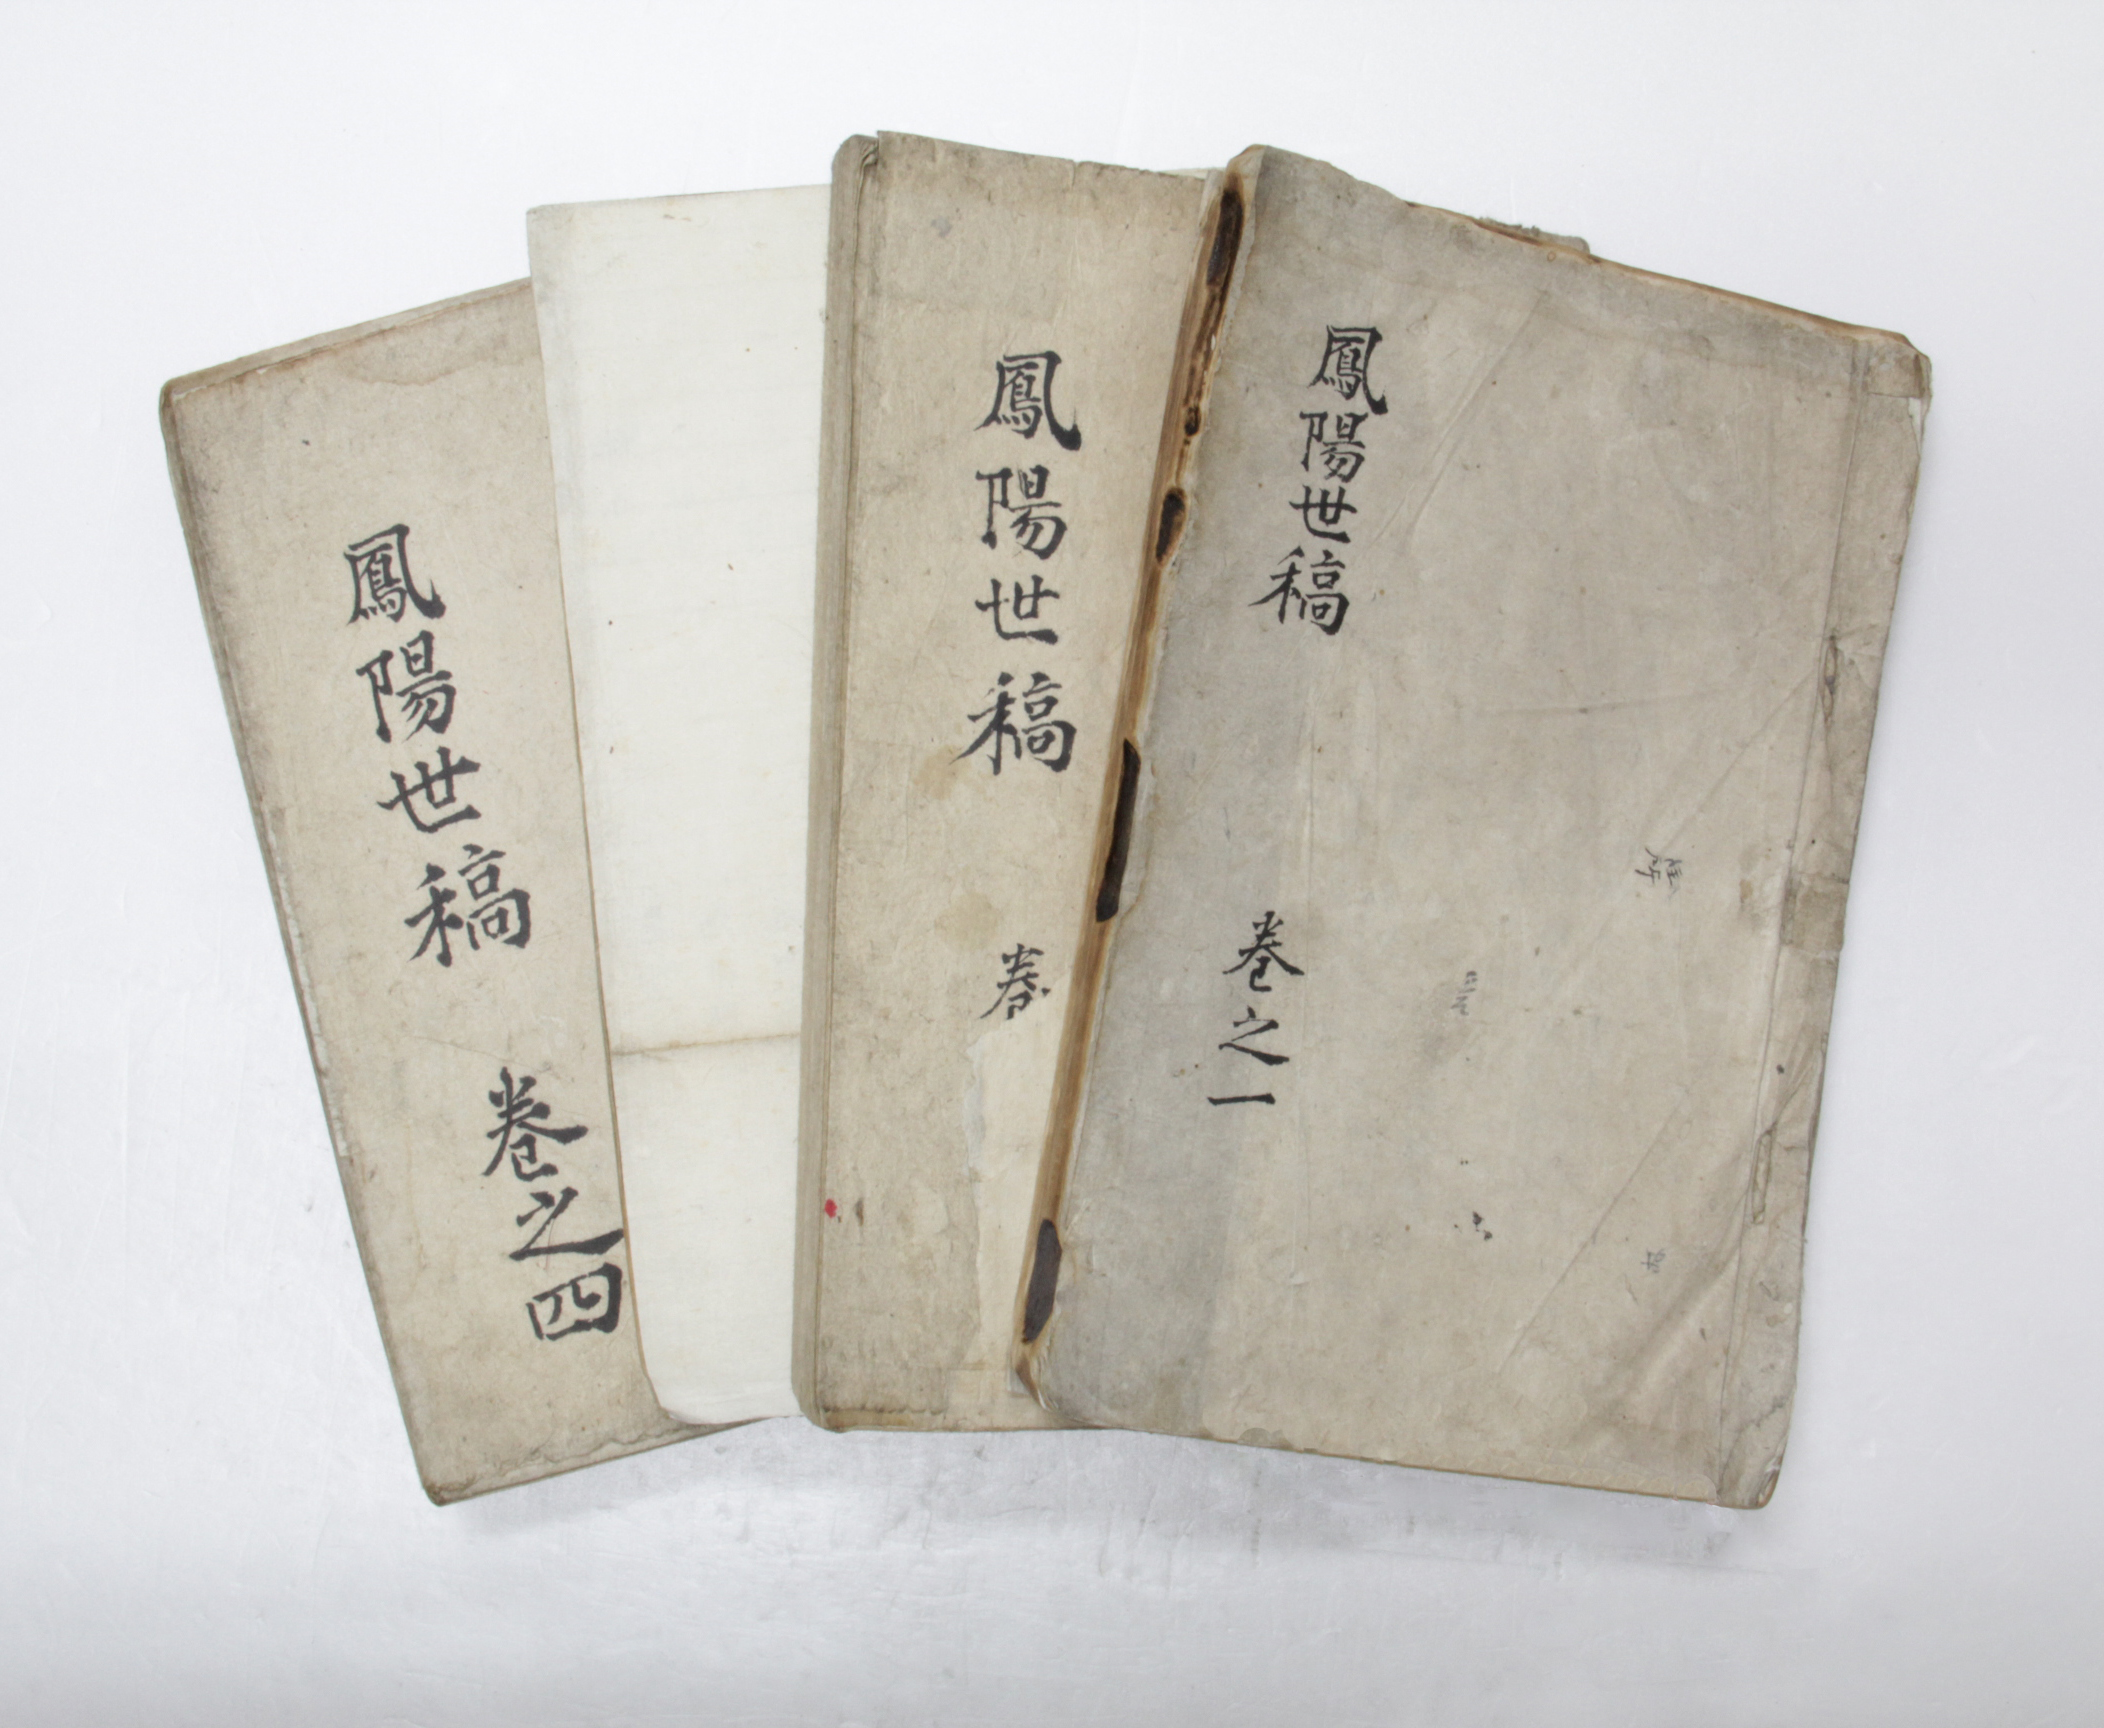 鳳陽世稿
卷之一
鳳陽世稿
卷
鳳陽世稿
卷之四